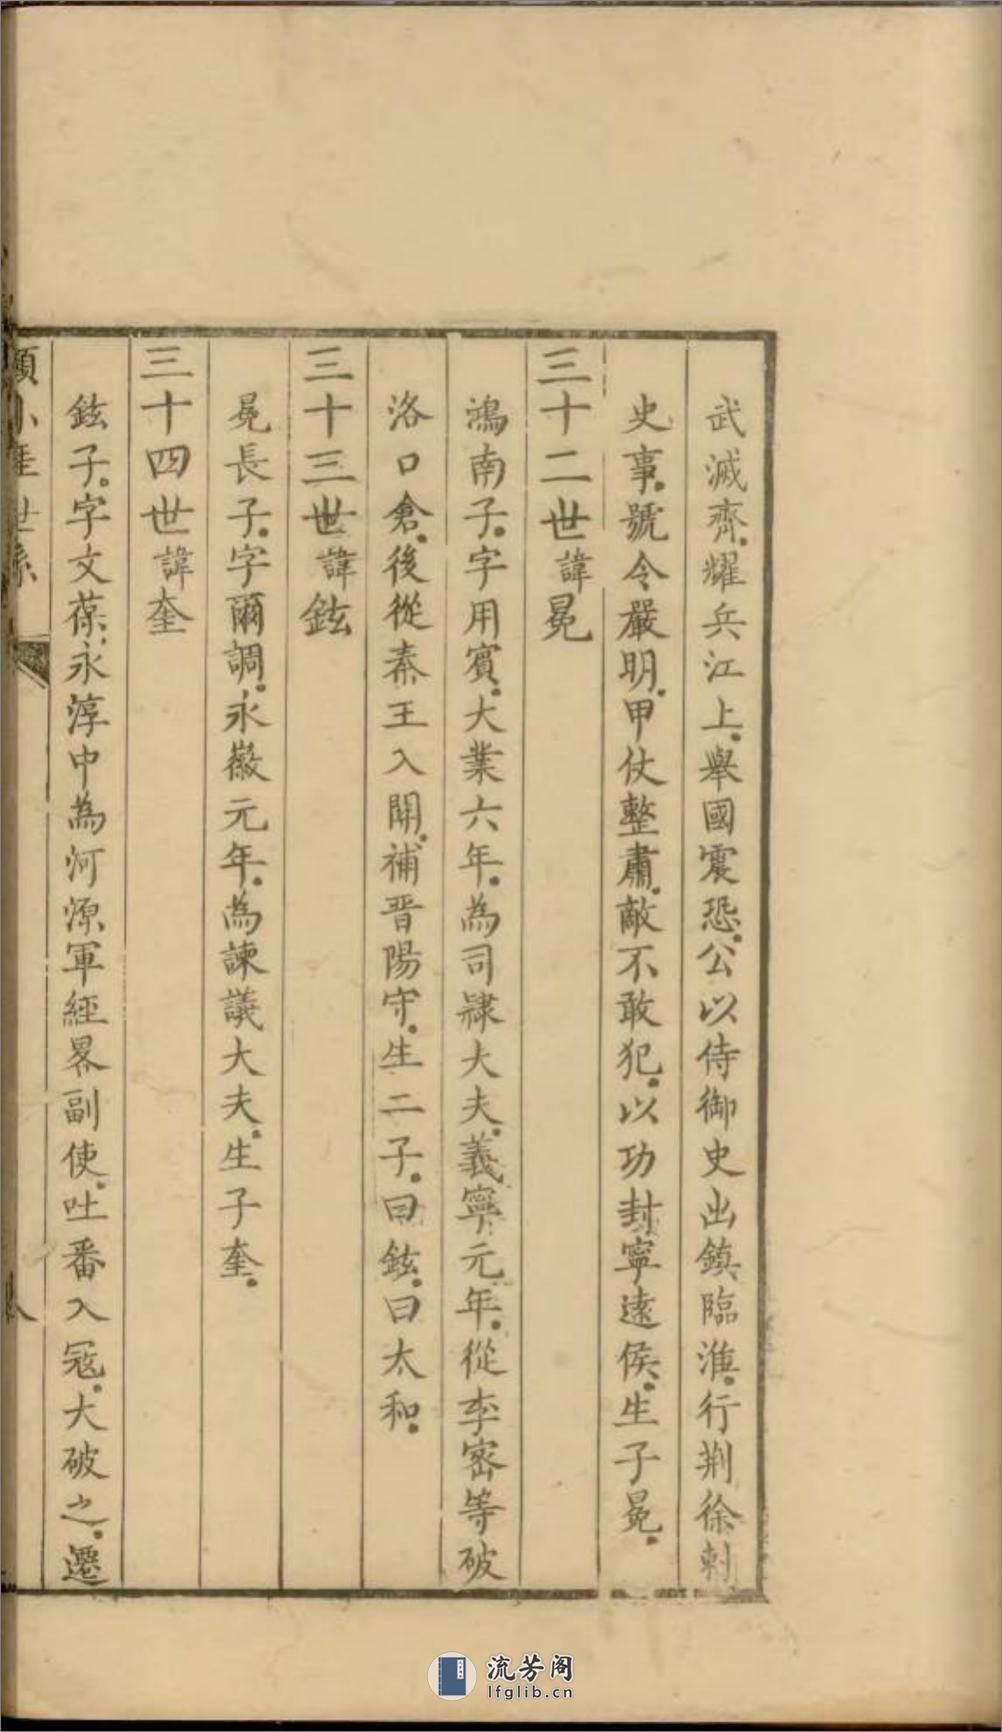 武滅齊耀兵江上舉國震恐公以侍御史出鎮臨淮行荆徐刺
史事號令嚴明甲仗整肅敵不敢犯以功封寧遠侯生子冕
三十二世諱冕
鴻南子字用賓大業六年為司隸大夫義寧元年從李密等破
洛口倉後從秦王入關補晋陽守生二子曰鉉曰太和
三十三世諱鉉
冕長子字爾調永徽元年為諫議大夫生子奎
三十四世諱奎
鉉子字文葆永淳中為河源軍經畧副使吐番入寇大破之遷
世系
流芳阁
lfglib.cn